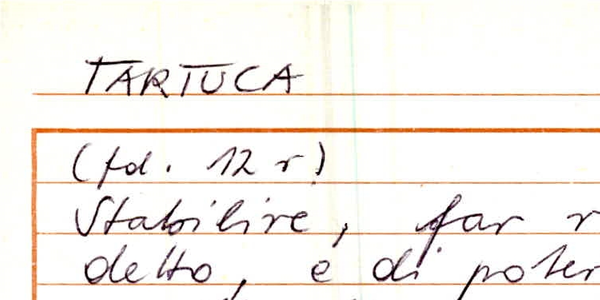 TARTUCA
(fd. 12 r)
Stabilire, far r
detto, e di poter